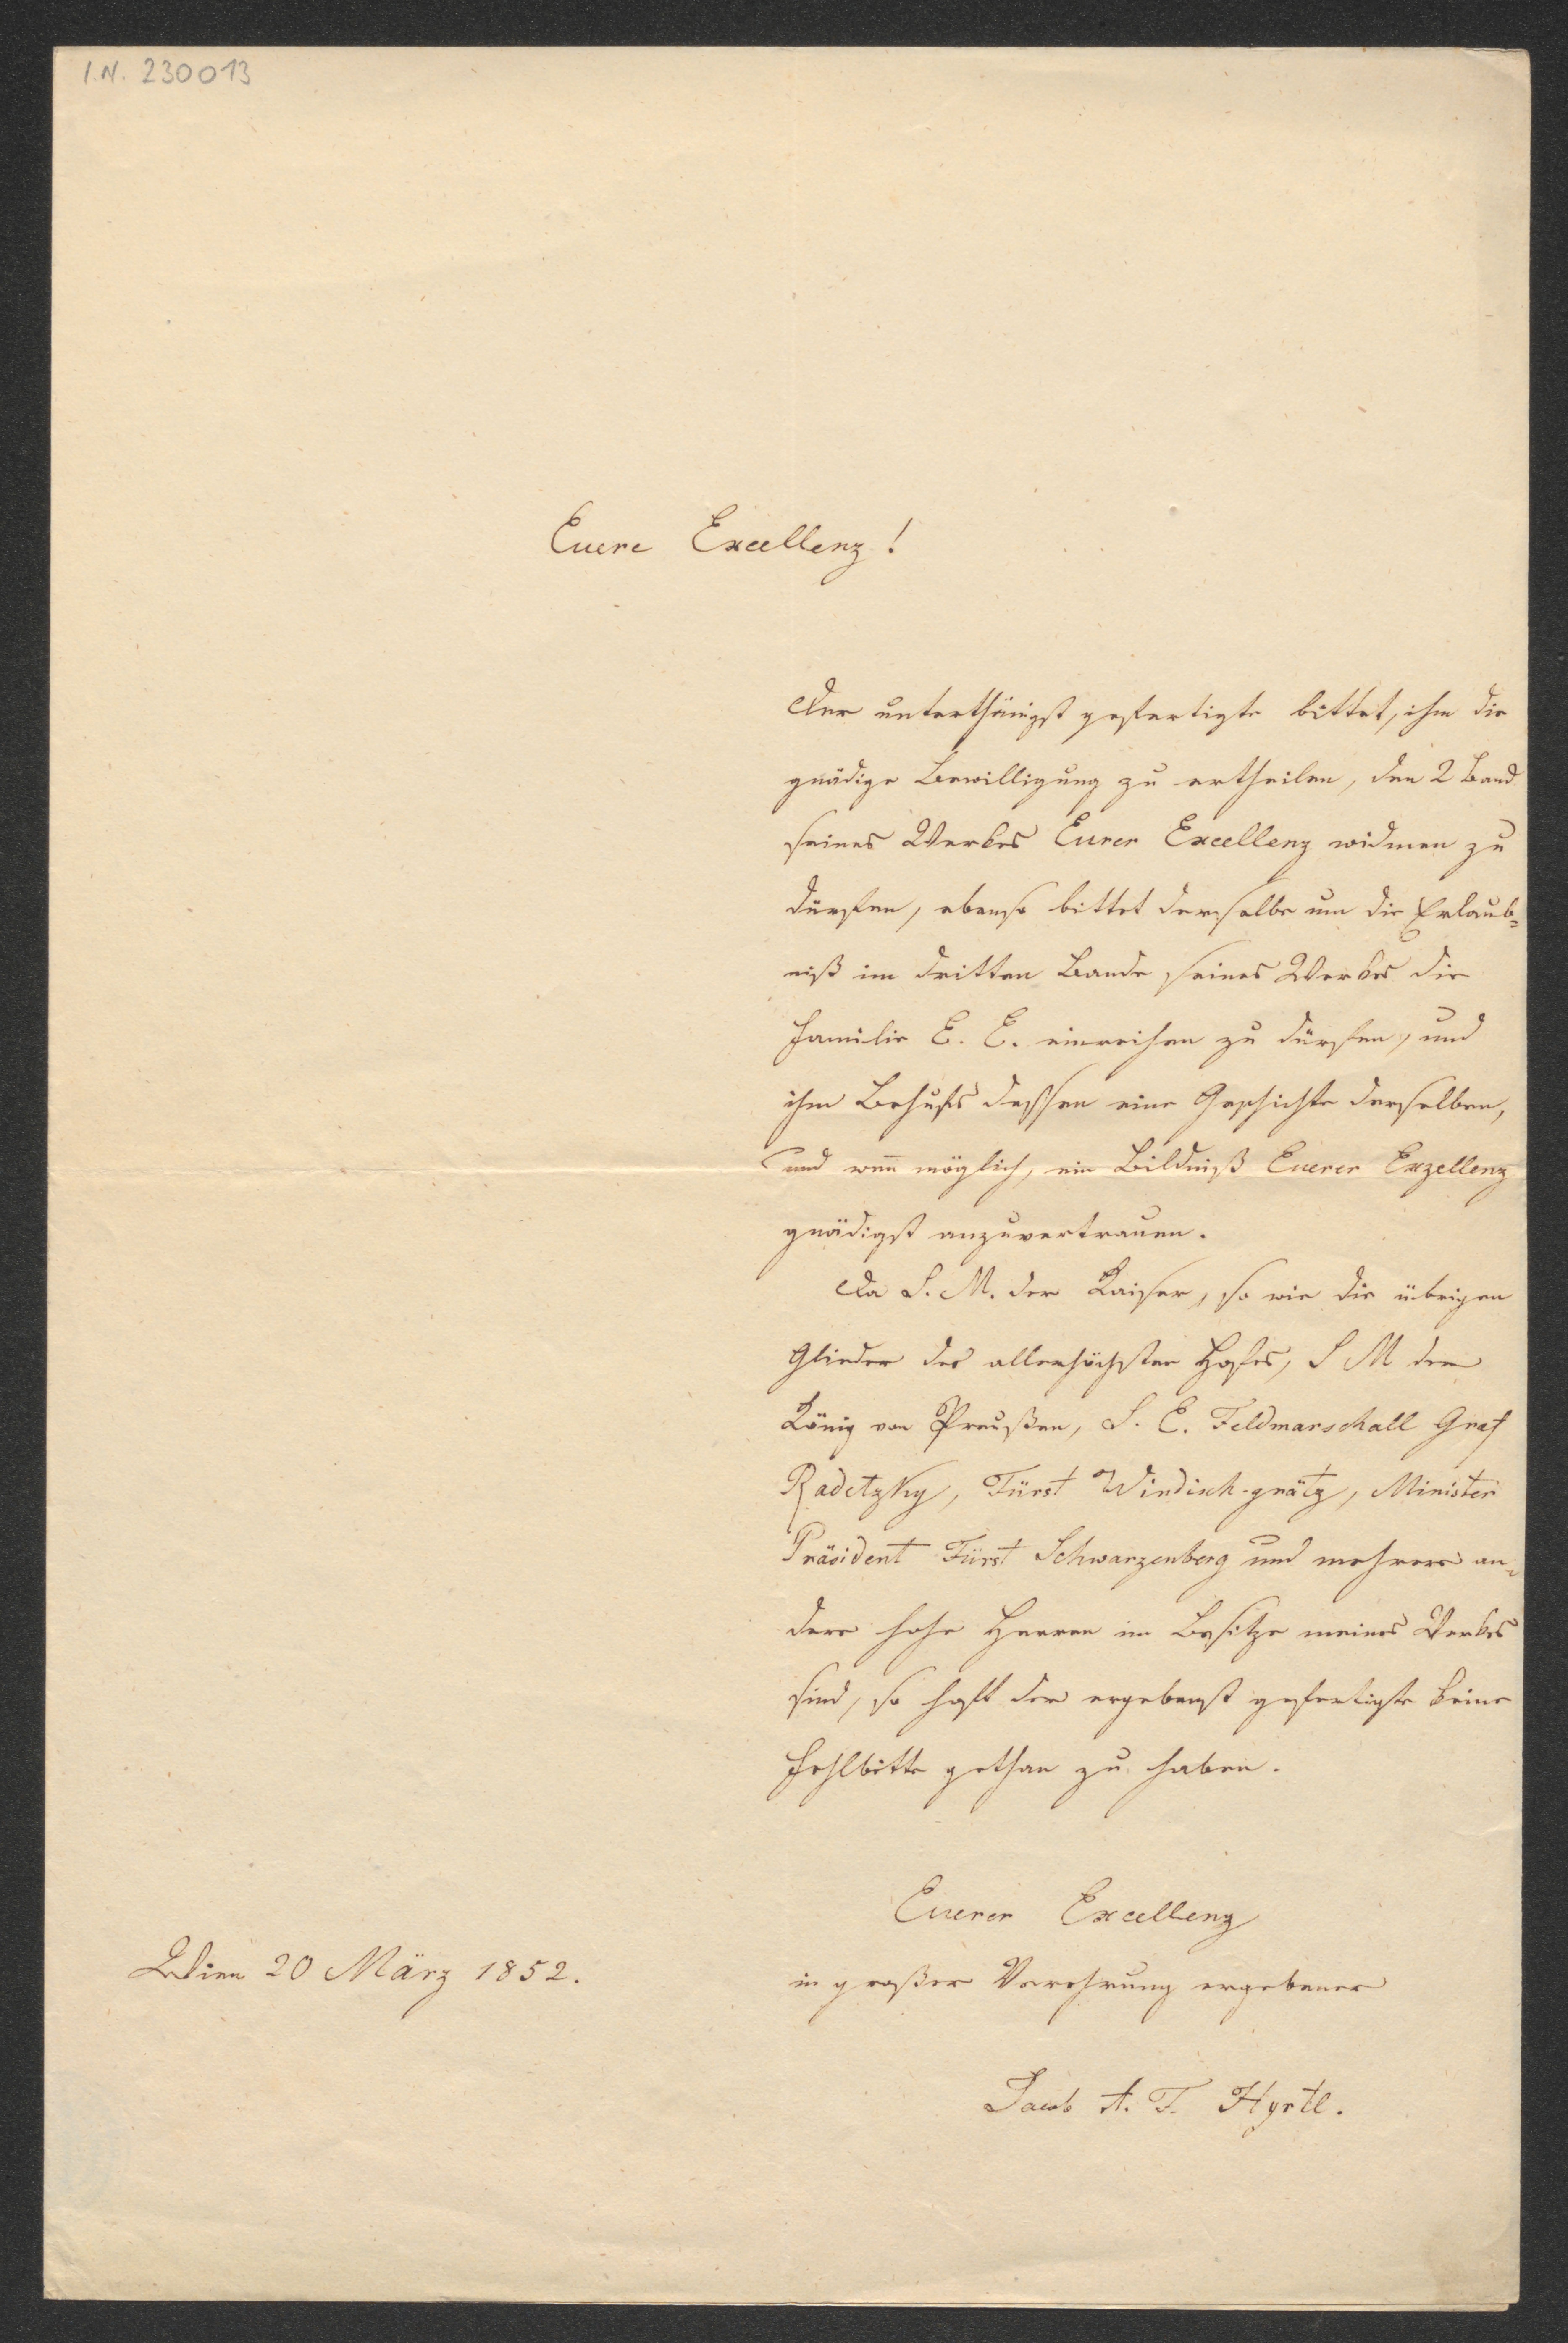 I.N. 230013
Euere Excellenz!
Der unterthänigst gefertigte bittet, ihm die
gnädige Bewilligung zu ertheilen, den 2 Band
seines Werkes Eurer Excellenz widmen zu
dürfen, ebenso bittet derselbe um die Erlaub=
niß im dritten Bande seines Werkes die
Familie E. E. einreihen zu dürfen, und
ihm Behufs dessen eine Geschichte derselben,
und wenn möglich, ein Bildniß Euerer Exzellenz
gnädigst anzuvertrauen.
Da S. M. der Kaiser, so wie die übrigen
Glieder des allerhöchsten Hofes, S M der
König von Preußen, S. E. Feldmarschall Graf
Radetzky, Fürst Windisch-grätz, Minister
Präsident Fürst Schwarzenberg und mehrere an=
dere hohe Herren im Besitze meines Werkes
sind, so hofft der ergebenst gefertigte keine
Fehlbitte gethan zu haben.
Euerer Excellenz
Wien 20 März 1852.
in großer Verehrung ergebener
Jacob A. F. Hyrtl.